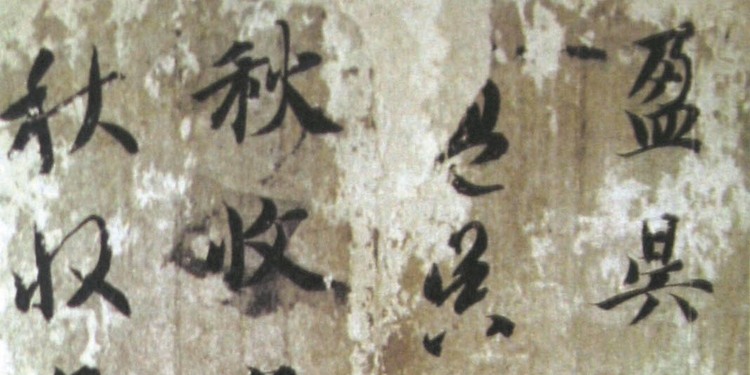 盈昃
盈昃
秋收
秋收